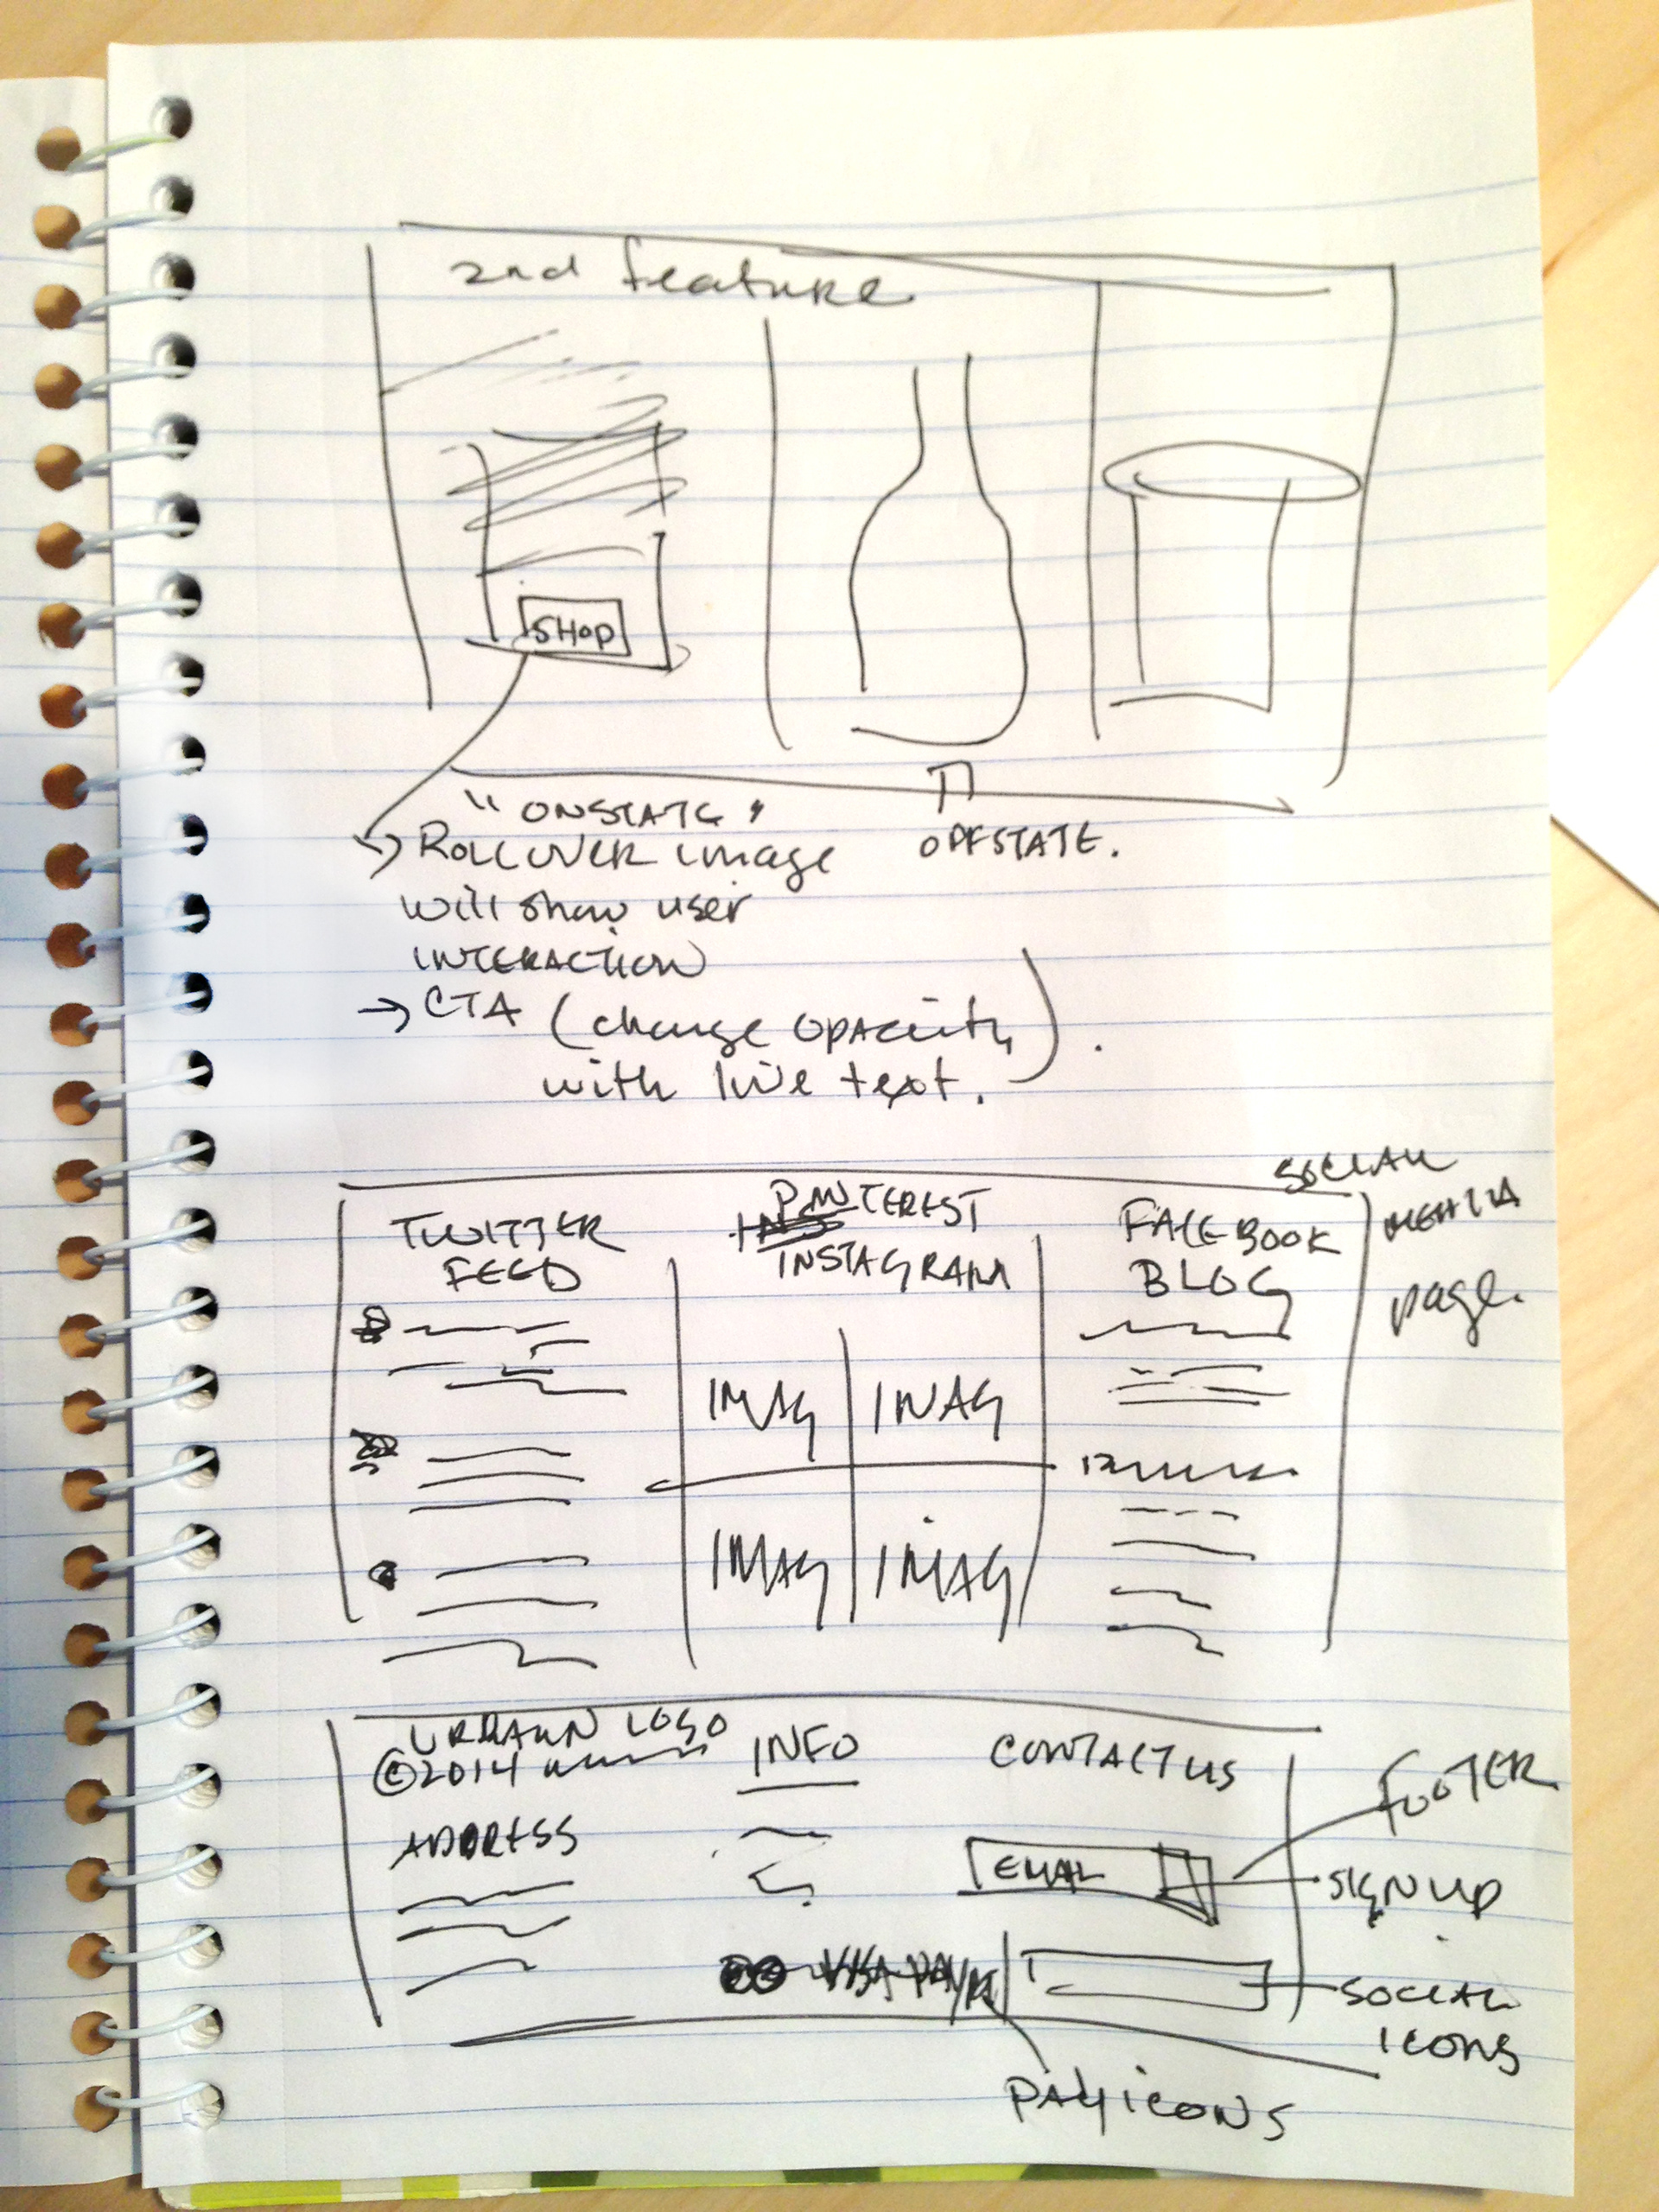 2nd feature
SHOP
"ONSTATE"
ROLLOVER image
will show user
INTERACTION
→ CTA (change opacity
with live text.).
OFFSTATE.
SOCIAL
MEDIA
page.
TWITTER
FEED
PINTEREST
INSTAGRAM
FACEBOOK
BLOG
IMAG IMAG
IMAG IMAG
LOGO
©2014
ADDRESS
INFO
CONTACT US
EMAIL
VISA
FOOTER
SIGN UP
SOCIAL
ICONS
PAY ICONS